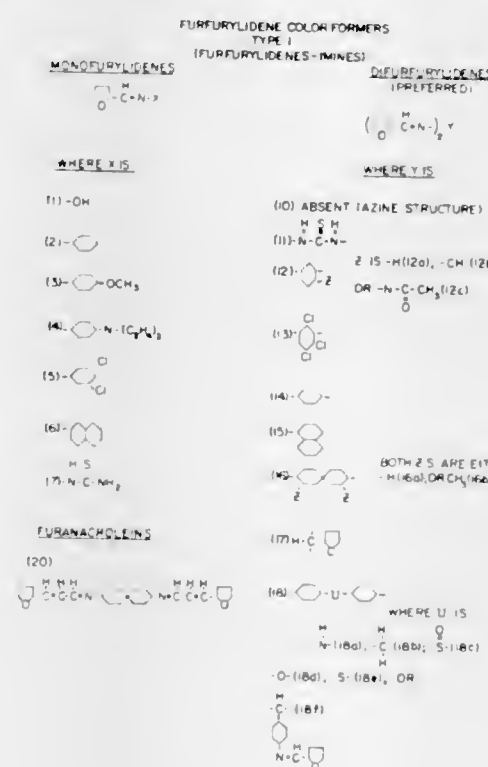 FURFURYLIDENE COLOR FORMERS
TYPE I
(FURFURYLIDENES-IMINES)
MONOFURYLIDENES
H
O -C=N-X
WHERE X IS
(1) -OH
(2)-
(3)- -OCH3
(4)- -N-(C2H4)2
(5)- Cl
Cl
(6)-
H S
(7)-N-C-NH2
FURANACROLEINS
(20)
H H H H H H
O C=C-C=N- -N=C-C=C- O
DIFURFURYLIDENES
(PREFERRED)
H
( O C=N-)2 Y
WHERE Y IS
(10) ABSENT (AZINE STRUCTURE)
H S H
(11)-N-C-N-
(12) -Z
Z IS -H(12a), -CH
OR -N-C-CH3(12c)
O
(13)- Cl
Cl Cl
(14)- -
(15)-
(16)- -
Z Z
BOTH Z'S ARE
-H(16a); OR CH3(16b)
(17) H-C
(18)- -U- -
WHERE U IS
H H O
N-(18a), -C-(18b); S-(18c)
H
-O-(18d), S-(18e), OR
H
-C-(18f)
H
N=C- O